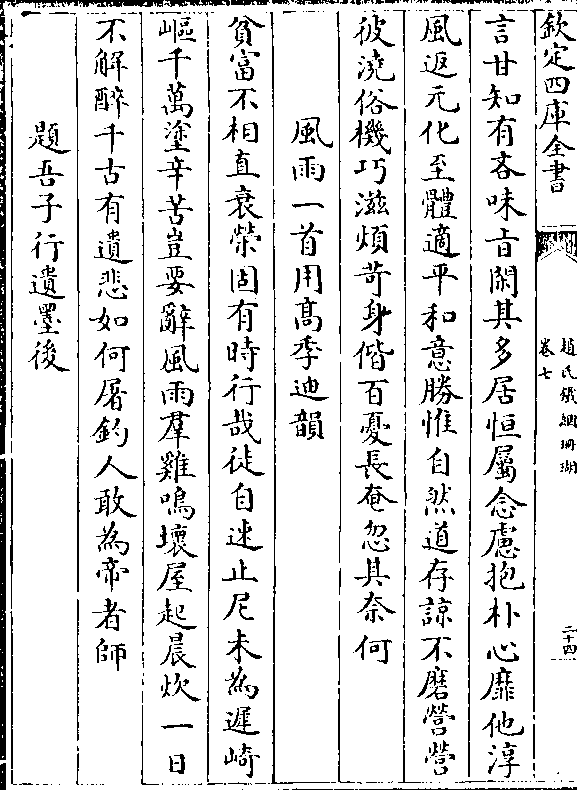 欽定四庫全書
趙氏鐵網珊瑚
卷七
二十四
言甘知有吝味旨閑其多居恒屬念慮抱朴心靡他淳
風返元化至體適平和意勝惟自然道存諒不磨營營
彼澆俗機巧滋煩苛身偕百憂長奄忽其奈何
風雨一首用髙季迪韻
貧富不相直衰榮固有時行哉徒自迷止尼未為遲崎
嶇千萬塗辛苦豈要辭風雨羣雞鳴壞屋起晨炊一日
不解醉千古有遺悲如何屠釣人敢為帝者師
題吾子行遺墨後